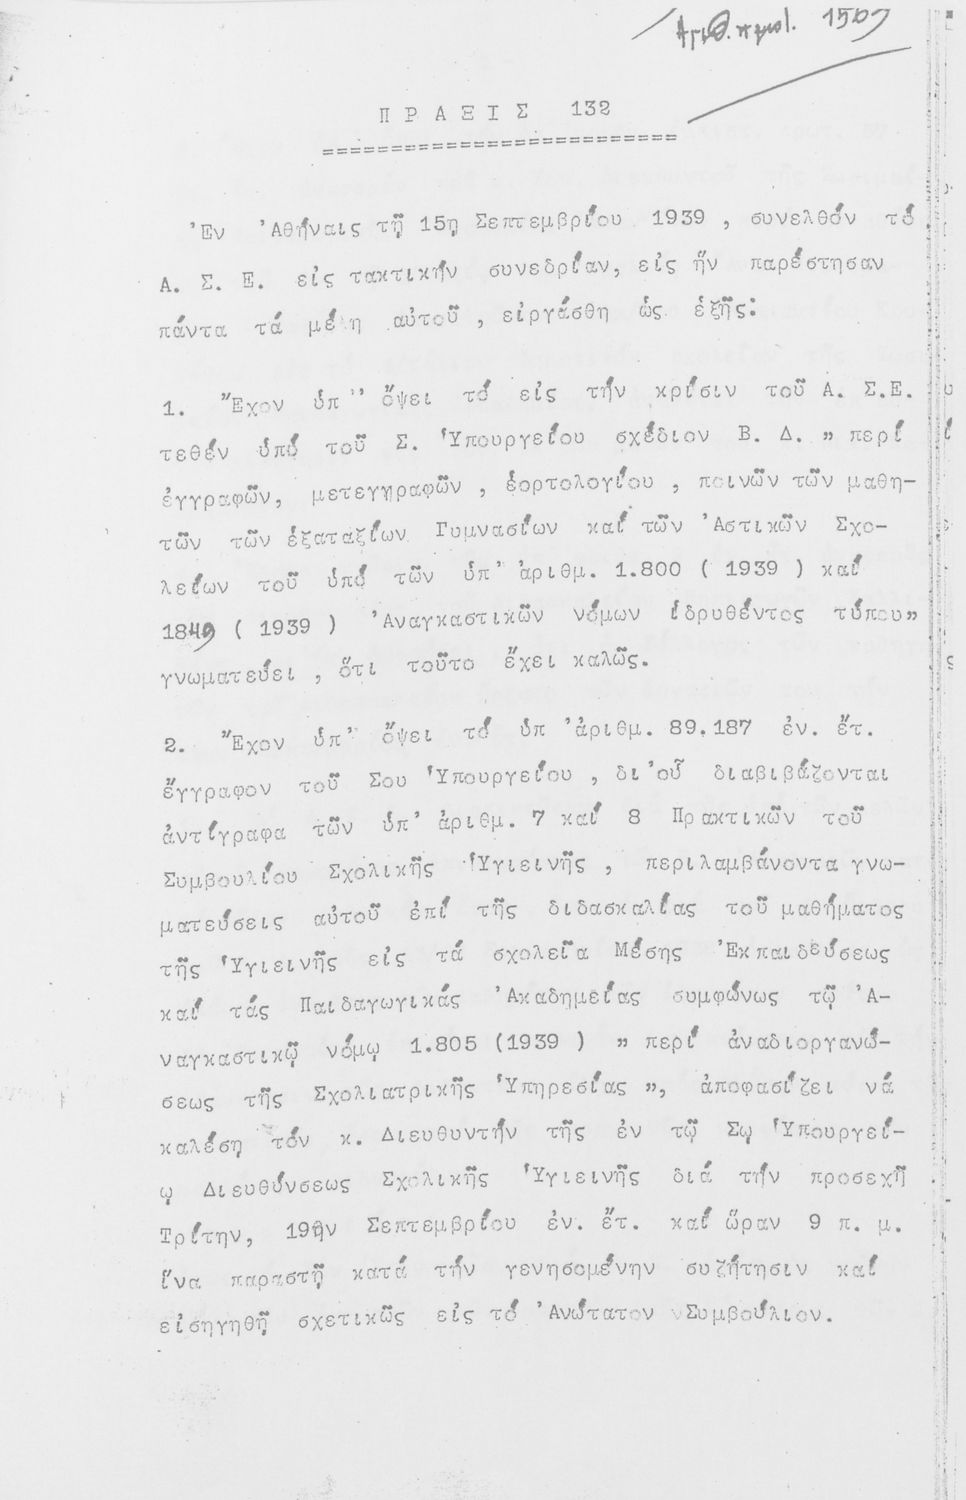 Αριθ. πρωτ. 1509
ΠΡΑΞΙΣ 132
==========================
Ἐν Ἀθήναις τῇ 15η Σεπτεμβρίου 1939 , συνελθόν τό
Α. Σ. Ε. εἰς τακτικήν συνεδρίαν, εἰς ἥν παρέστησαν
πάντα τά μέλη αὐτοῦ , εἰργάσθη ὡς ἑξῆς:
1. Ἔχον ὑπ' ὄψει τό εἰς τήν κρίσιν τοῦ Α. Σ.Ε. υ
τεθέν ὑπό τοῦ Σ. Ὑπουργείου σχέδιον Β. Δ. " περί
ἐγγραφῶν, μετεγγραφῶν , ἑορτολογίου , ποινῶν τῶν μαθη-
τῶν τῶν ἑξαταξίων Γυμνασίων καί τῶν Ἀστικῶν Σχο-
λείων τοῦ ὑπό τῶν ὑπ' ἀριθμ. 1.800 ( 1939 ) καί
1849 ( 1939 ) Ἀναγκαστικῶν νόμων ἱδρυθέντος τύπου"
γνωματεύει , ὅτι τοῦτο ἔχει καλῶς.
2. Ἔχον ὑπ' ὄψει τό ὑπ 'ἀριθμ. 89.187 ἐν. ἔτ.
ἔγγραφον τοῦ Σου Ὑπουργείου , δι'οὗ διαβιβάζονται
ἀντίγραφα τῶν ὑπ' ἀριθμ. 7 καί 8 Πρακτικῶν τοῦ
Συμβουλίου Σχολικῆς Ὑγιεινῆς , περιλαμβάνοντα γνω-
ματεύσεις αὐτοῦ ἐπί τῆς διδασκαλίας τοῦ μαθήματος
τῆς Ὑγιεινῆς εἰς τά σχολεῖα Μέσης Ἐκπαιδεύσεως
καί τάς Παιδαγωγικάς Ἀκαδημείας συμφώνως τῷ Ἀ-
ναγκαστικῷ νόμῳ 1.805 (1939 ) " περί ἀναδιοργανώ-
σεως τῆς Σχολιατρικῆς Ὑπηρεσίας ", ἀποφασίζει νά
καλέση τόν κ. Διευθυντήν τῆς ἐν τῷ Σῳ Ὑπουργεί-
ῳ Διευθύνσεως Σχολικῆς Ὑγιεινῆς διά τήν προσεχῆ
Τρίτην, 19ην Σεπτεμβρίου ἐν. ἔτ. καί ὥραν 9 π. μ.
ἵνα παραστῇ κατά τήν γενησομένην συζήτησιν καί
εἰσηγηθῇ σχετικῶς εἰς τό Ἀνώτατον Συμβούλιον.